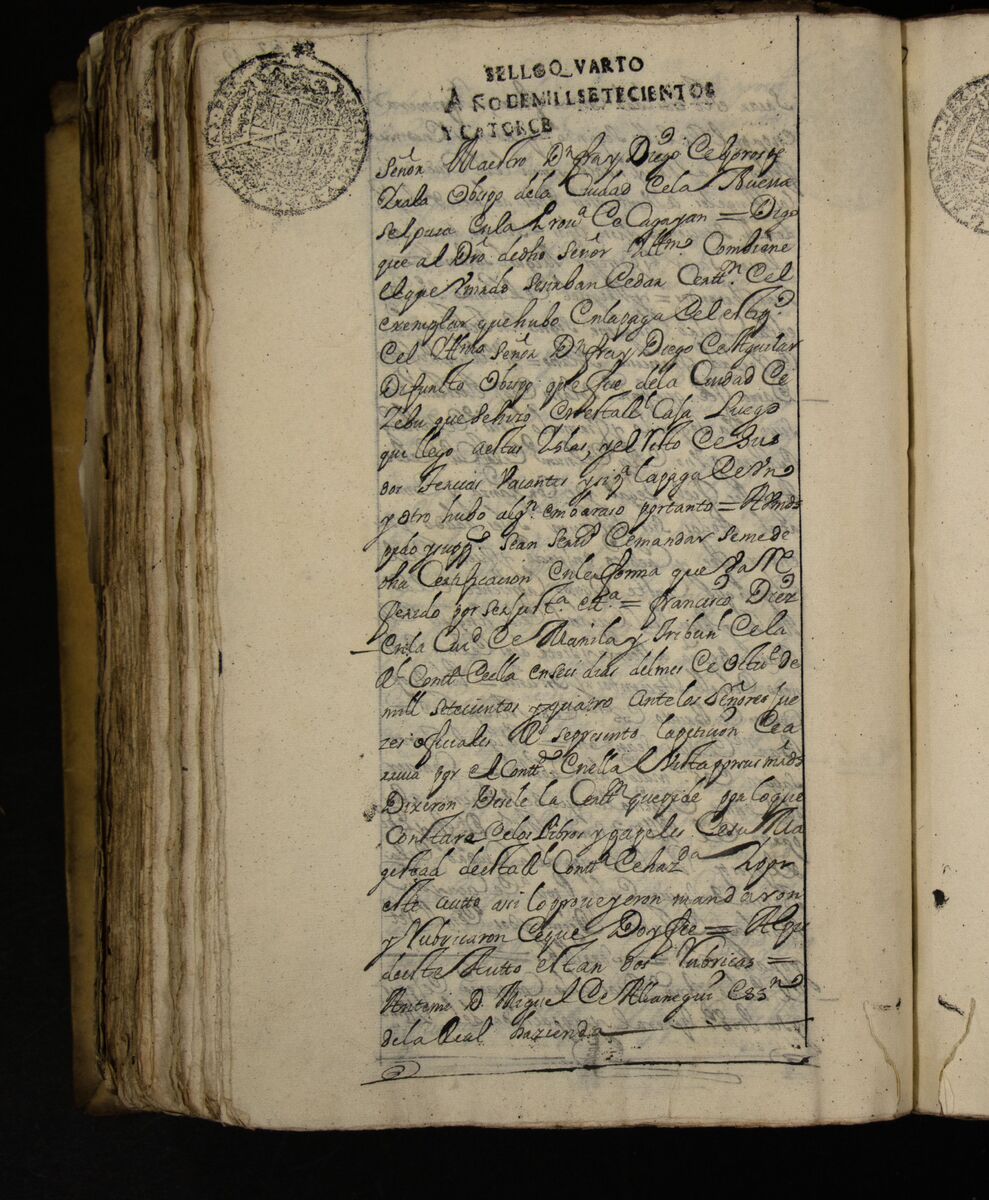 SELLO QVARTO
AÑO DE MILL SETECIENTOS
Y CATORCE
Señor Maestro Dn fray Diego
Obispo dela Ciudad de la Nueva
en la Prova de Cagayan = Digo
que al Dro. de dho Señor Illmo. Combiene
el que se sirban de dar Certtn. del
exemplar que hubo en la paga del
del Illmo Señor Dn fray Diego de Aguilar
Difunto Obispo que fue dela Ciudad de
Zebu que se hizo en esta Rl Casa Luego
que llego a estas Yslas, y el resto de sus
dos tercias Vacantes y si en la paga de Vno
y otro hubo algn. embaraso por tanto =
pido y suppco. sean servdos de mandar se me de
dha Certificacion en la forma que
por ser justa. etta. = Francisco Diez
En la Ciud de Manila y Tribunl de la
Rl Contta de ella en seis dias del mes de Octue. de
mill setecientos y quatro ante los Señores Jue
zes oficiales Rs se presento la peticion de a
rriva por el en ella Vista por sus mds
Dixeron Desele la Certtn que pide por lo que
Constare de los libros y papeles de su Ma
gestad de esta Rl Contta de hazda Y por
este Autto asi lo proveyeron mandaron
y Rubricaron de que Doy fee = Al pie
de este Autto estan dos Rubricas =
Antemi D. Miguel de Allanegui Essno
de la Real hazienda